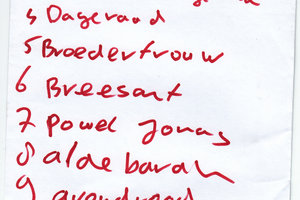 4 Dageraad
5 Broedertrouw
6 Breesant
7 Powel Jonas
8 aldebaran
9